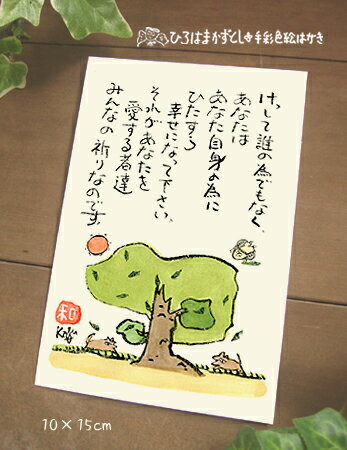 ひろはまかずとし 手彩色絵はがき
けっして誰の為でもなく、
あなたは
あなた自身の為に
ひたすら
幸せになって下さい。
それがあなたを
愛する者達
みんなの祈りなのです。
和
10×15cm